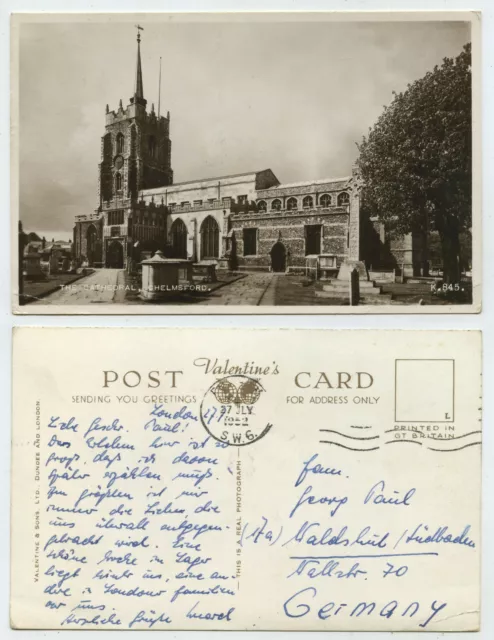 THE CATHEDRAL, CHELMSFORD.
K.845.
POST Valentine's CARD
SENDING YOU GREETINGS
FOR ADDRESS ONLY
VALENTINE & SONS, LTD., DUNDEE AND LONDON.
THIS IS A REAL PHOTOGRAPH
27 JLY
S.W.6.
L
PRINTED IN
GT BRITAIN
London 27.
Liebe Paul!
Das Erleben hier ist so
groß, daß ich davon
später erzählen muß.
Am größten ist mir
immer die Liebe, die
uns überall entgegen-
gebracht wird. Eine
schöne Woche im Lager
liegt hinter uns, eine an-
dere in Londoner Familien
vor uns.
Herzliche Grüße
Fam.
Georg Paul
Waldshut / Südbaden
Wallstr. 70
Germany